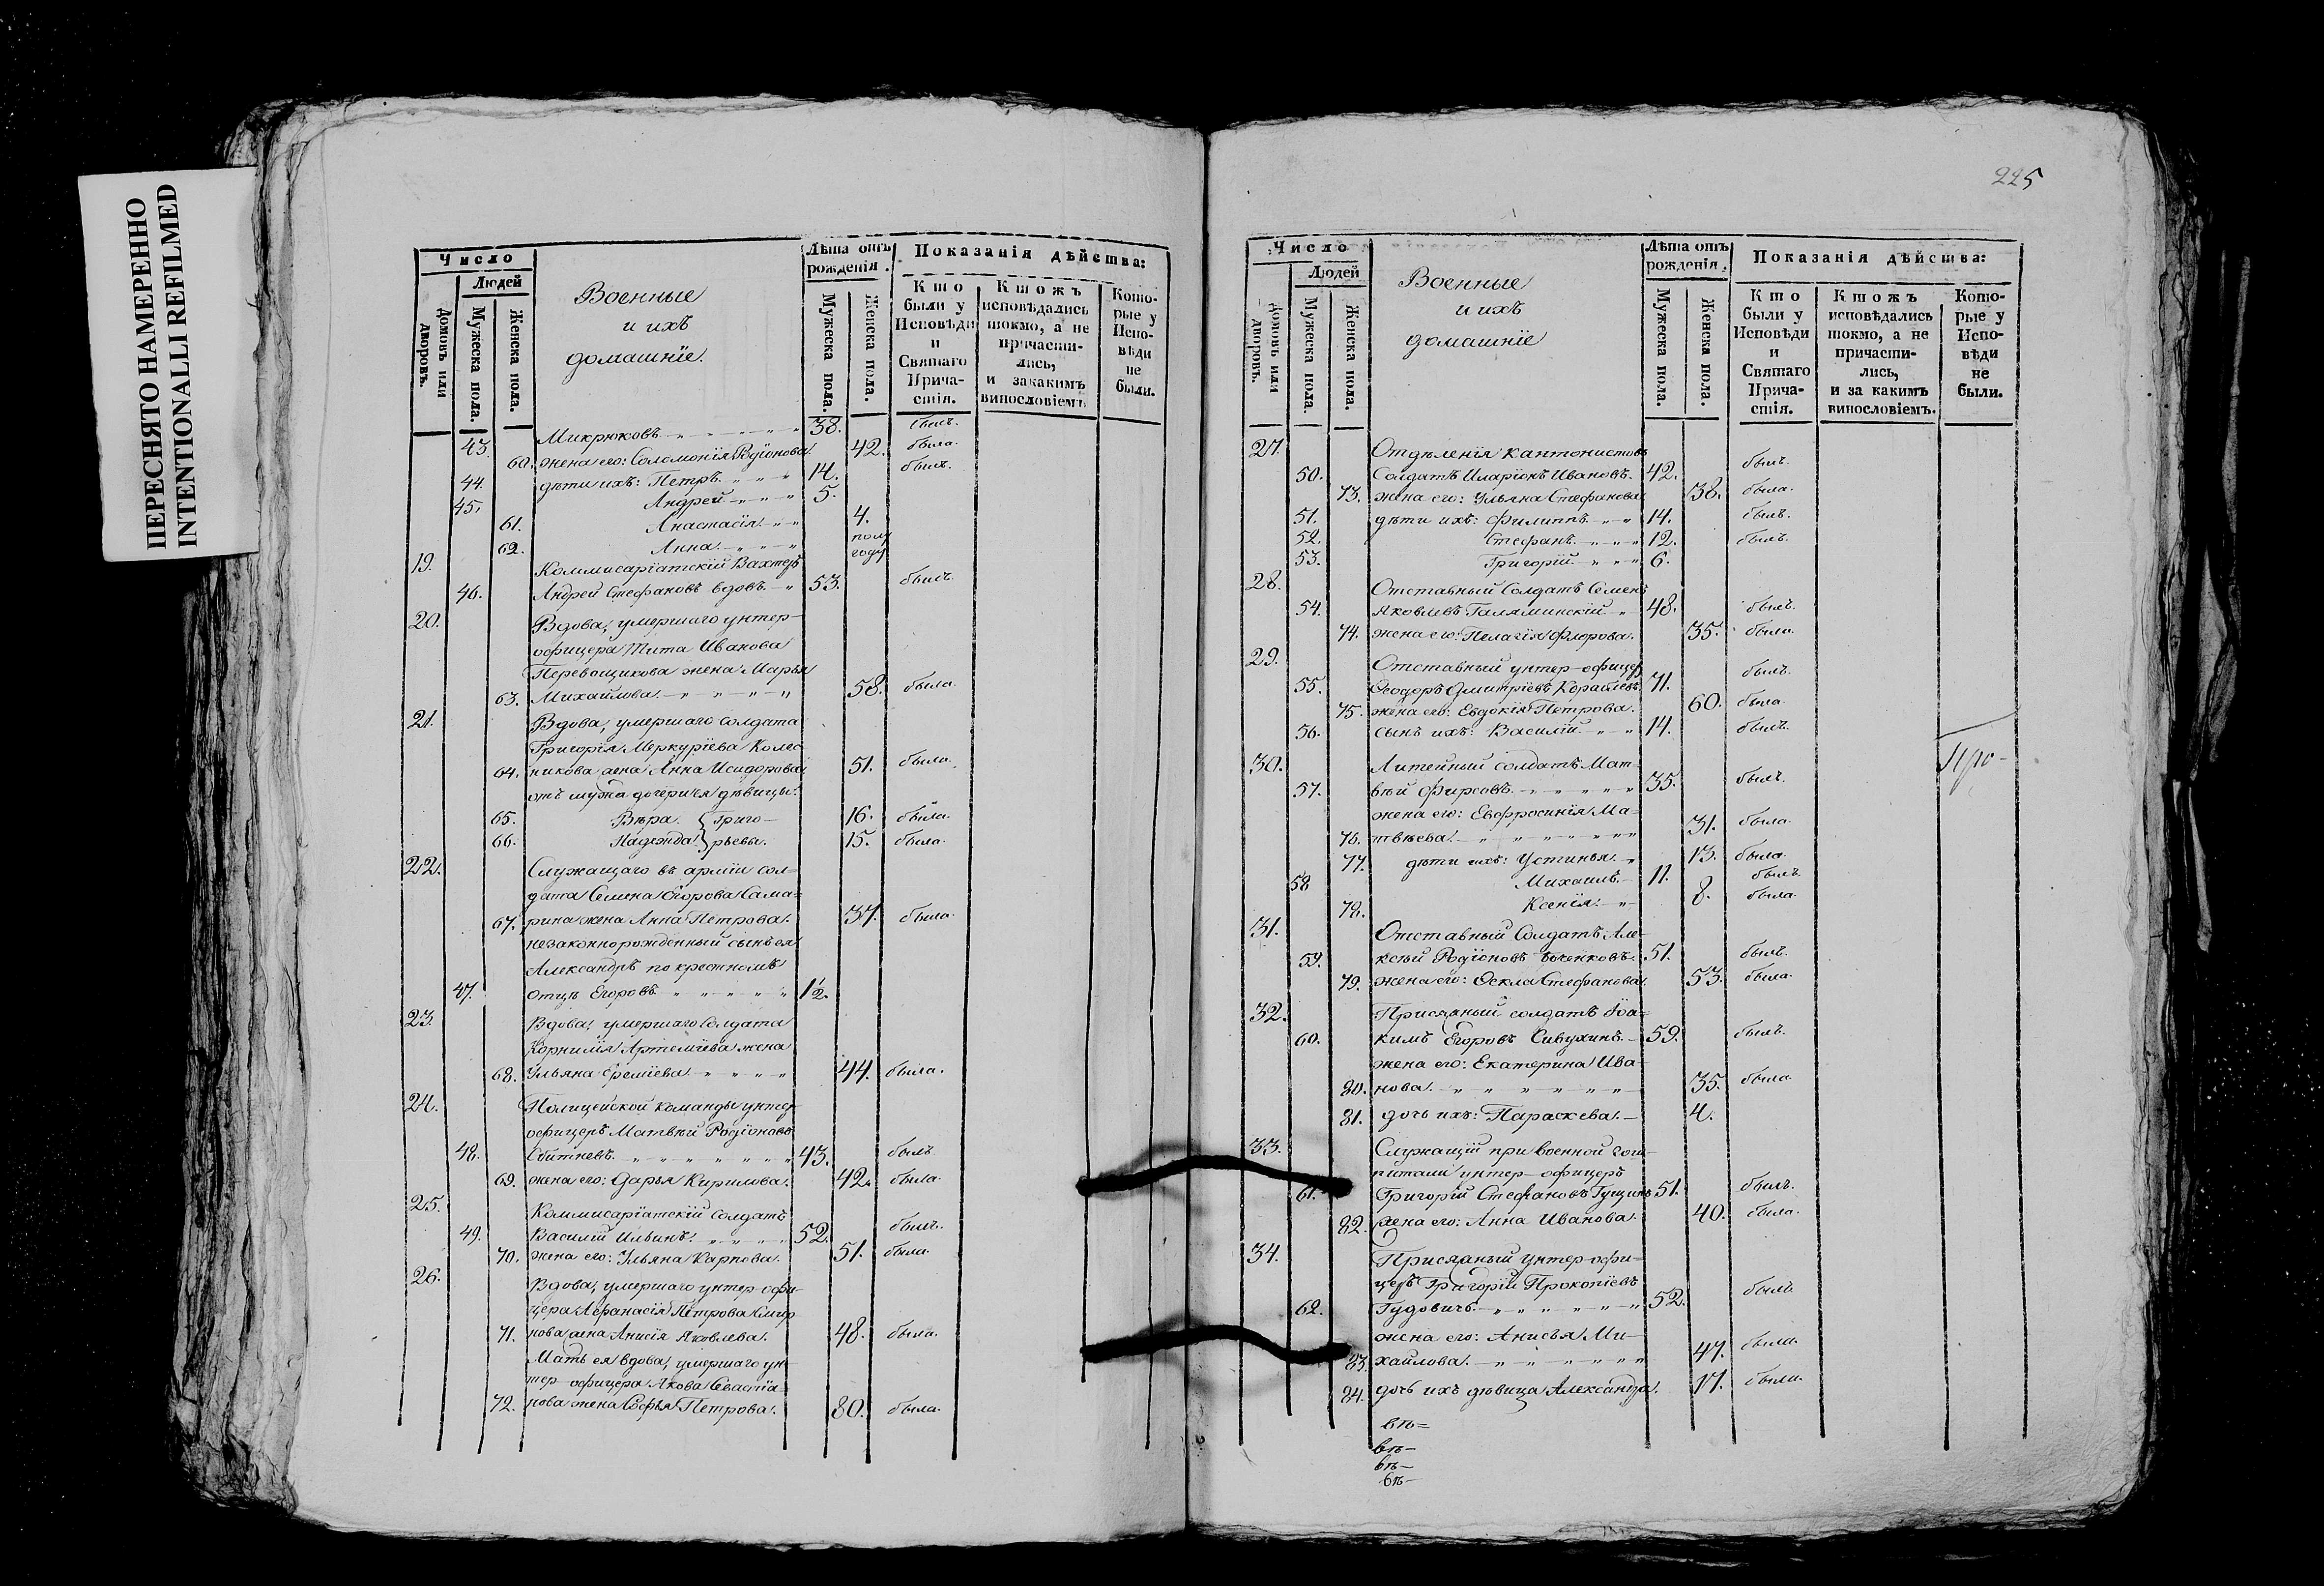 ПЕРЕСНЯТО НАМЕРЕННО
INTENTIONALLI REFILMED
Число
Людей
Домовъ или дворовъ.
Мужеска пола.
Женска пола.
Военные
и ихъ
домашніе.
Лѣта отъ рожденія.
Мужеска пола.
Женска пола.
Показанія дѣйства:
Кто были у Исповѣди и Святаго Причастія.
Ктожъ исповѣдались токмо, а не причастились, и закакимъ винословіемъ
Которые у Исповѣди не были.
43. Микрюковъ 38. былъ.
60. жена его: Соломонія Родіонова 42. была.
44. дѣти ихъ: Петръ 14. былъ.
45. Андрей 5.
61. Анастасія 4.
62. Анна полу году
19. Коммисаріатскій Вахтеръ
46. Андрей Стефановъ вдовъ 53. былъ.
20. Вдова, умершаго унтер-
офицера Тита Иванова
Перевощикова жена Марья
63. Михайлова 58. была.
21. Вдова, умершаго солдата
Григорія Меркуріева Колес
64. никова жена Анна Исидорова 51. была.
отъ мужа дочери ея дѣвицы:
65. Вѣра. Григо- 16. была.
66. Надежда рьевы. 15. была.
22. Служащаго въ арміи сол-
дата Семена Егорова Сама-
67. рина жена Анна Петрова. 37. была.
незаконнорожденный сынъ ея
Александръ по крестномъ
47. отцѣ Егоровъ 1½.
23. Вдова, умершаго Солдата
Корнилія Артеміева жена
68. Ульяна Еремѣева 44. была.
24. Полицейской команды унтер
офицеръ Матвѣй Родіоновъ
48. Сбитневъ 43. былъ.
69. жена его: Дарья Кирилова. 42. была.
25. Коммисаріатскій Солдатъ
49. Василій Ильинъ 52. былъ.
70. жена его: Ульяна Карпова. 51. была.
26. Вдова, умершаго унтер-офи-
цера Афанасія Петрова Смир
71. нова жена Анисія Яковлева. 48. была.
Мать ея вдова, умершаго ун-
тер-офицера Якова Севастіа-
72. нова жена Софья Петрова. 80. была.
225
Число
Людей
Домовъ или дворовъ.
Мужеска пола.
Женска пола.
Военные
и ихъ
домашніе
Лѣта отъ рожденія.
Мужеска пола.
Женска пола.
Показанія дѣйства:
Кто были у Исповѣди и Святаго Причастія.
Ктожъ исповѣдались токмо, а не причастились, и за какимъ винословіемъ.
Которые у Исповѣди не были.
27. Отдѣленія Кантонистовъ
50. Солдатъ Иларіонъ Ивановъ. 42. былъ.
73. жена его: Ульяна Стефанова 38. была.
51. дѣти ихъ: Филиппъ 14. былъ.
52. Стефанъ 12. былъ.
53. Григорій 6.
28. Отставный Солдатъ Семенъ
54. Яковлевъ Галяминскій 48. былъ.
74. жена его: Пелагія Флорова. 35. была.
29. Отставный унтер-офицеръ
55. Ѳеодоръ Дмитріевъ 71. былъ.
75. жена его: Евдокія Петрова. 60. была.
56. сынъ ихъ: Василій 14. былъ.
30. Литейный солдатъ Мат-
57. вѣй Фирсовъ 35. былъ.
жена его: Евфросинія Ма-
76. твѣева 31. была.
77. дѣти ихъ: Устинья 13. была.
58 Михаилъ 11. былъ.
78. Ксенія 8. была.
31. Отставный Солдатъ Але-
59. ксѣй Родіоновъ 51. былъ.
79. жена его: Ѳекла Стефанова. 53. была.
32. Присяжный солдатъ Іоа-
60. кимъ Егоровъ Сивухинъ 59. былъ.
жена его: Екатерина Ива-
80. нова 35. была.
81. дочь ихъ: Параскева. 4.
33. Служащій при военной гош-
питали унтер-офицеръ
61. Григорій Стефановъ Гущинъ 51. былъ.
82. жена его: Анна Иванова. 40. была.
34. Присяжный унтер-офи-
церъ Григорій Прокопіевъ
62. Гудовичъ 52. былъ.
жена его: Анисья Ми-
83. хайлова 47. была.
84. дочь ихъ дѣвица Александра. 17. была.
Про-
въ=
въ-
въ-
въ-